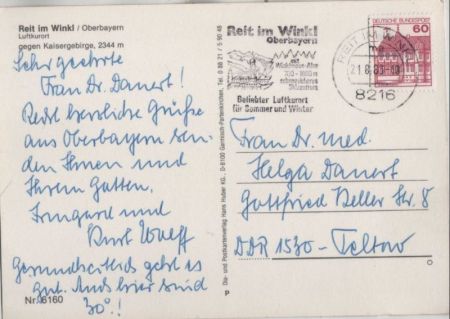 Reit im Winkl / Oberbayern
Luftkurort
gegen Kaisergebirge, 2344 m
Sehr geehrte
Frau Dr. Danert!
Recht herzliche Grüße
aus Oberbayern sen-
den Ihnen und
Ihrem Gatten,
Irmgard und
Kurt Wolff
Gesundheitlich geht es
gut. Auch hier sind
30°.!
Nr. 6160
Die- und Postkartenverlag Hans Huber KG., D-8100 Garmisch-Partenkirchen, Tel. 0 88 21 / 5 90 48
P
Reit im Winkl
Oberbayern
mit
Winklmoos-Alm
700-1800 m
schneesicheres
Skizentrum
Beliebter Luftkurort
für Sommer und Winter
REIT IM WINKL
8216
DEUTSCHE BUNDESPOST
60
Frau Dr. med.
Helga Danert
Gottfried Keller Str. 8
DDR 1530-Teltow